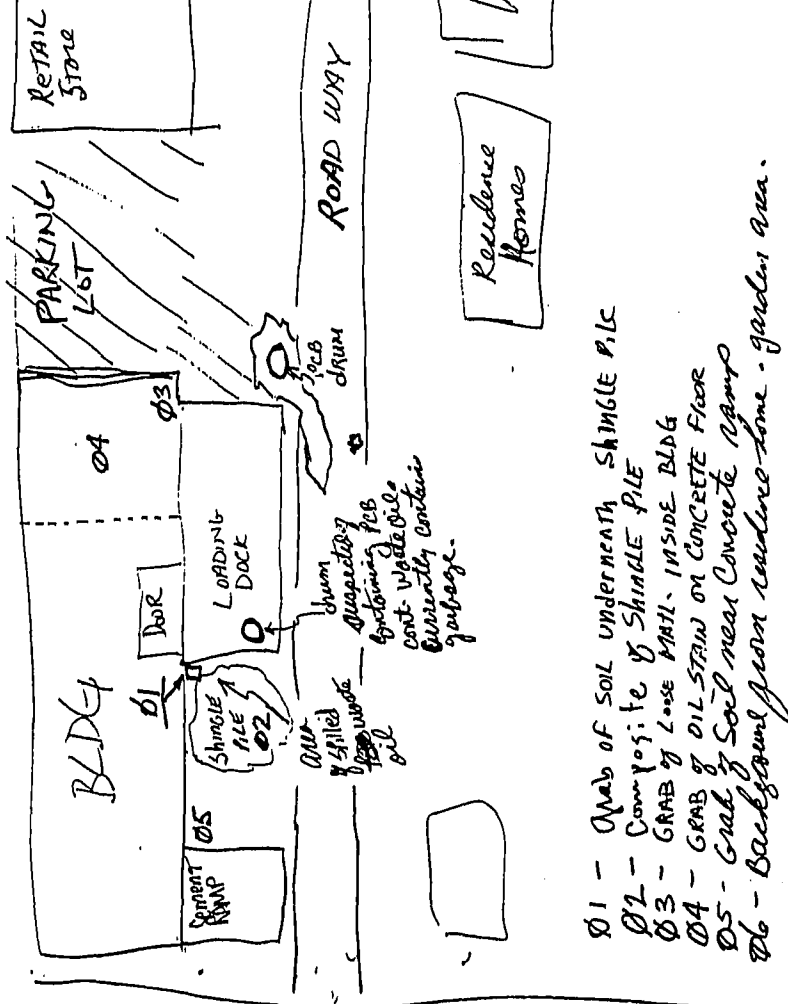 RETAIL
Store
PARKING
LOT
ROAD WAY
Residence
Homes
PCB
dRUM
Ø4
Ø3
BLDG
DooR
LOADING
DOCK
Ø1
Shingle
PILE
Ø2
Ø5
Cement
RAMP
area
of spilled
waste
oil
drum
suspected of
containing PCB
cont. Waste oil.
Currently contains
garbage.
Ø1 - Grab OF SOIL underneath Shingle Pile
Ø2 - Composite of Shingle Pile
Ø3 - GRAB of Loose MATL. INSIDE BLDG
Ø4 - GRAB of OIL STAIN on CONCRETE FlooR
Ø5 - Grab of Soil near Concrete ramp
Ø6 - Background from residence home - garden area.